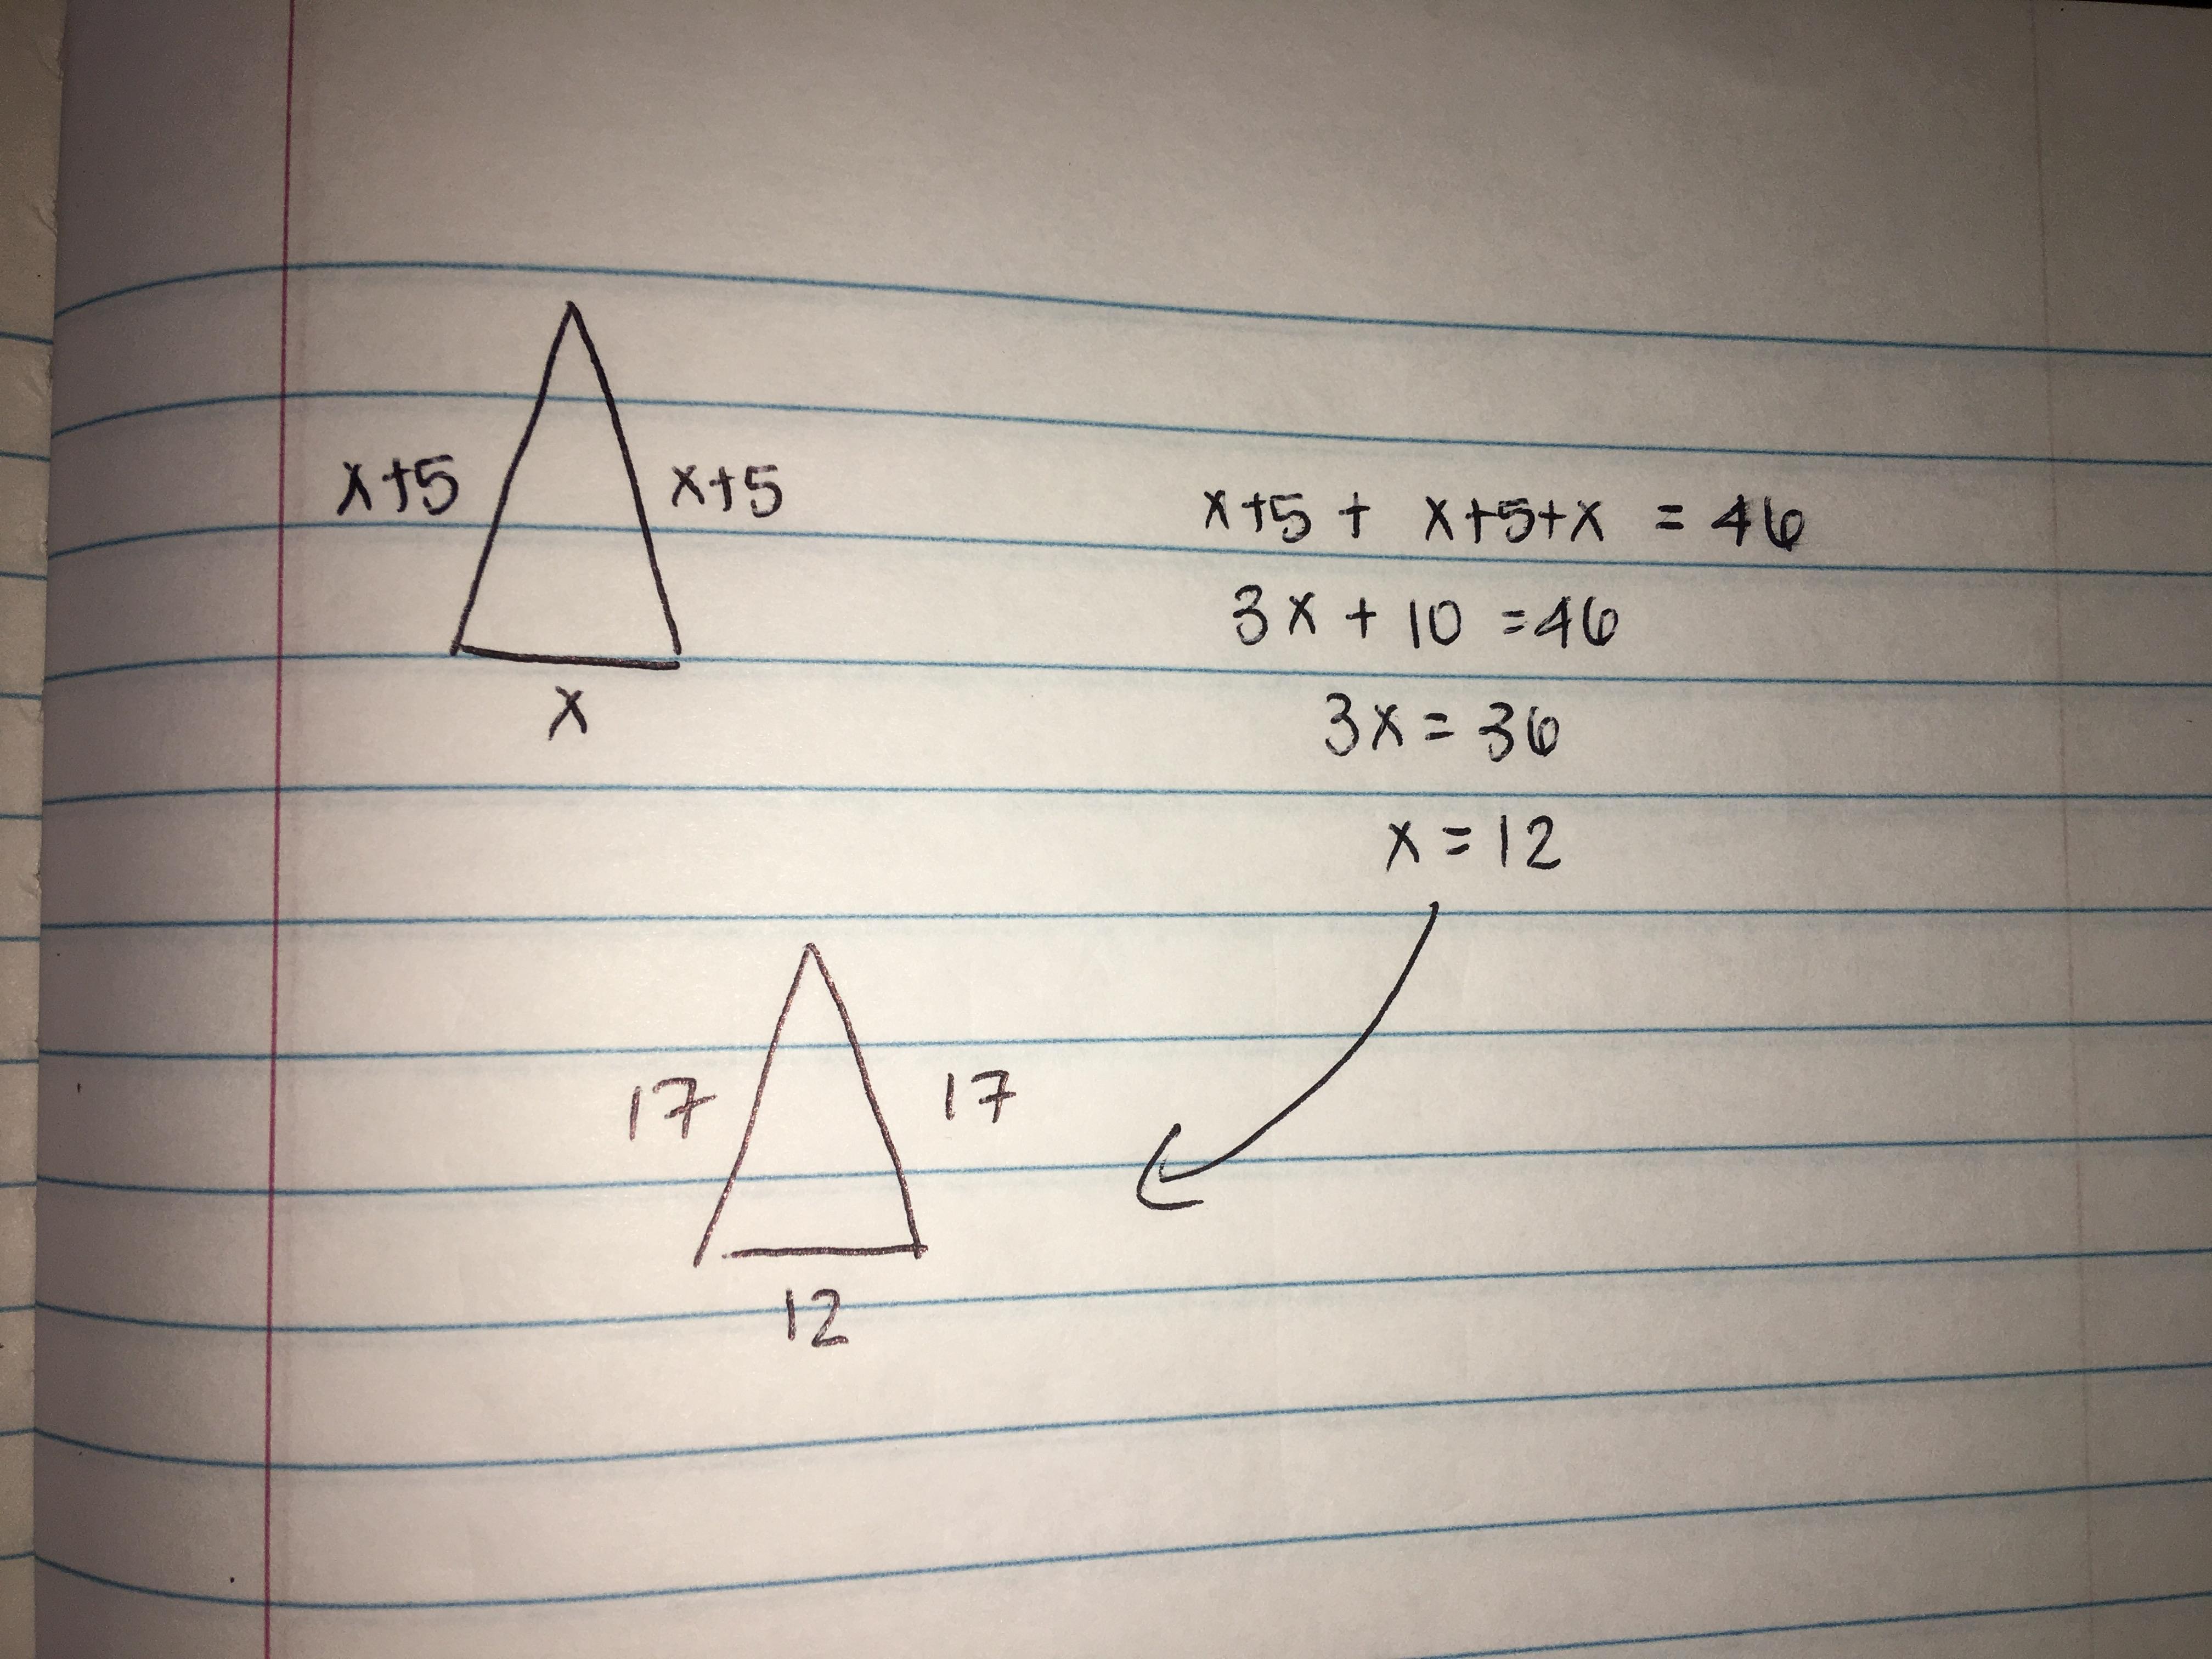 x+5
x+5
x
x+5 + x+5+x = 46
3x + 10 =46
3x = 36
x = 12
17
17
12